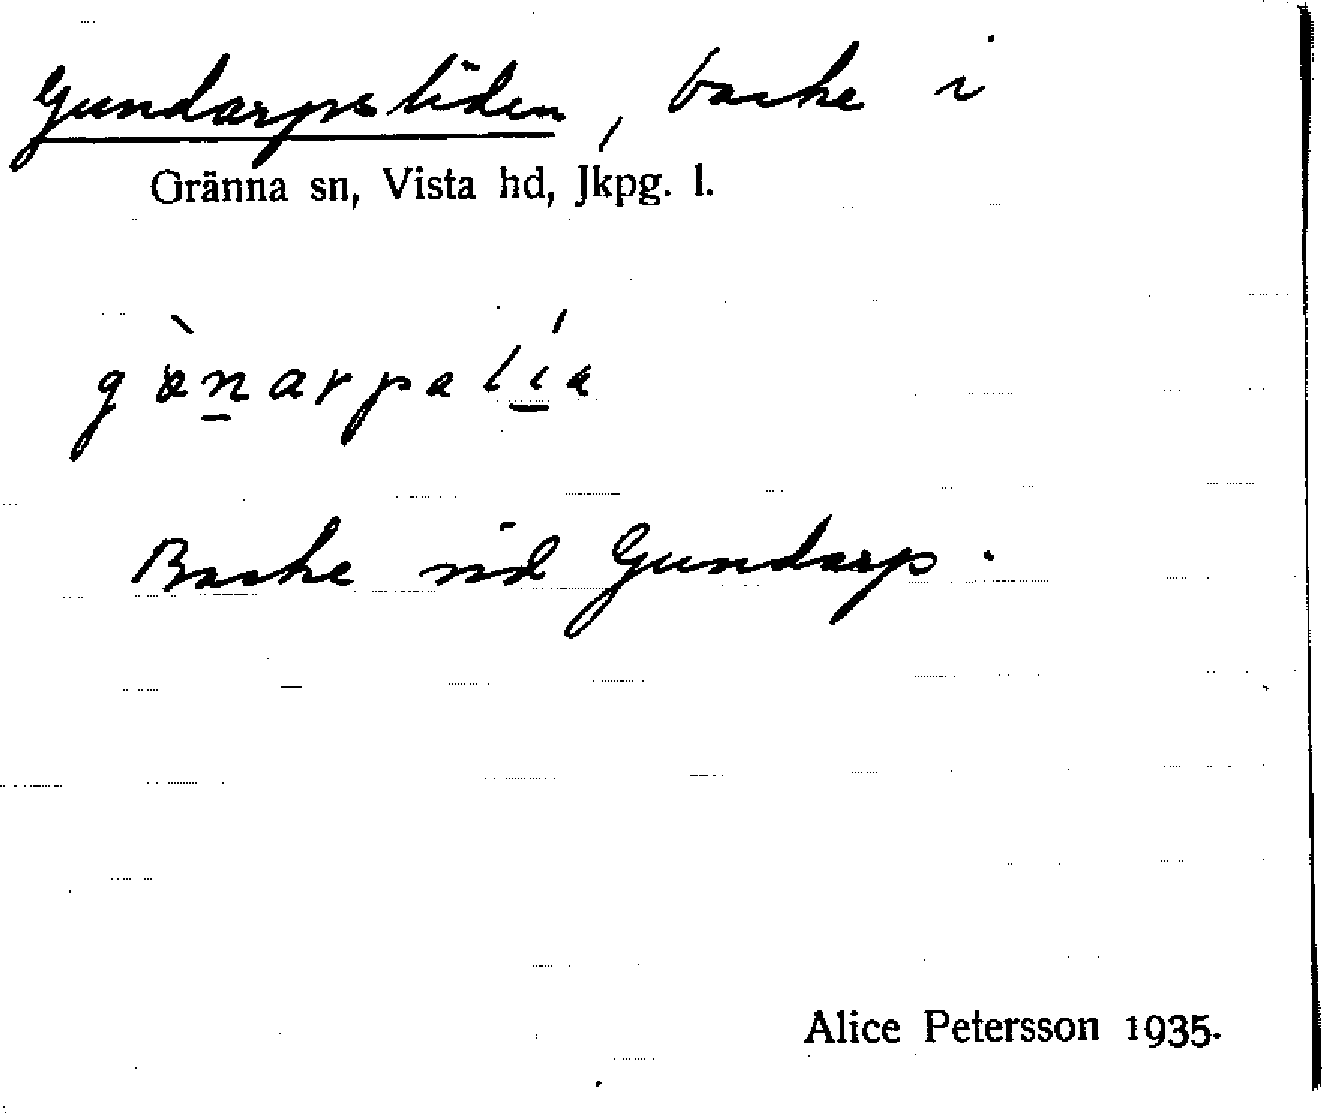 Gundarpsliden, backe i
Gränna sn, Vista hd, Jkpg. l.
Backe vid Gundarp.
Alice Petersson 1935.